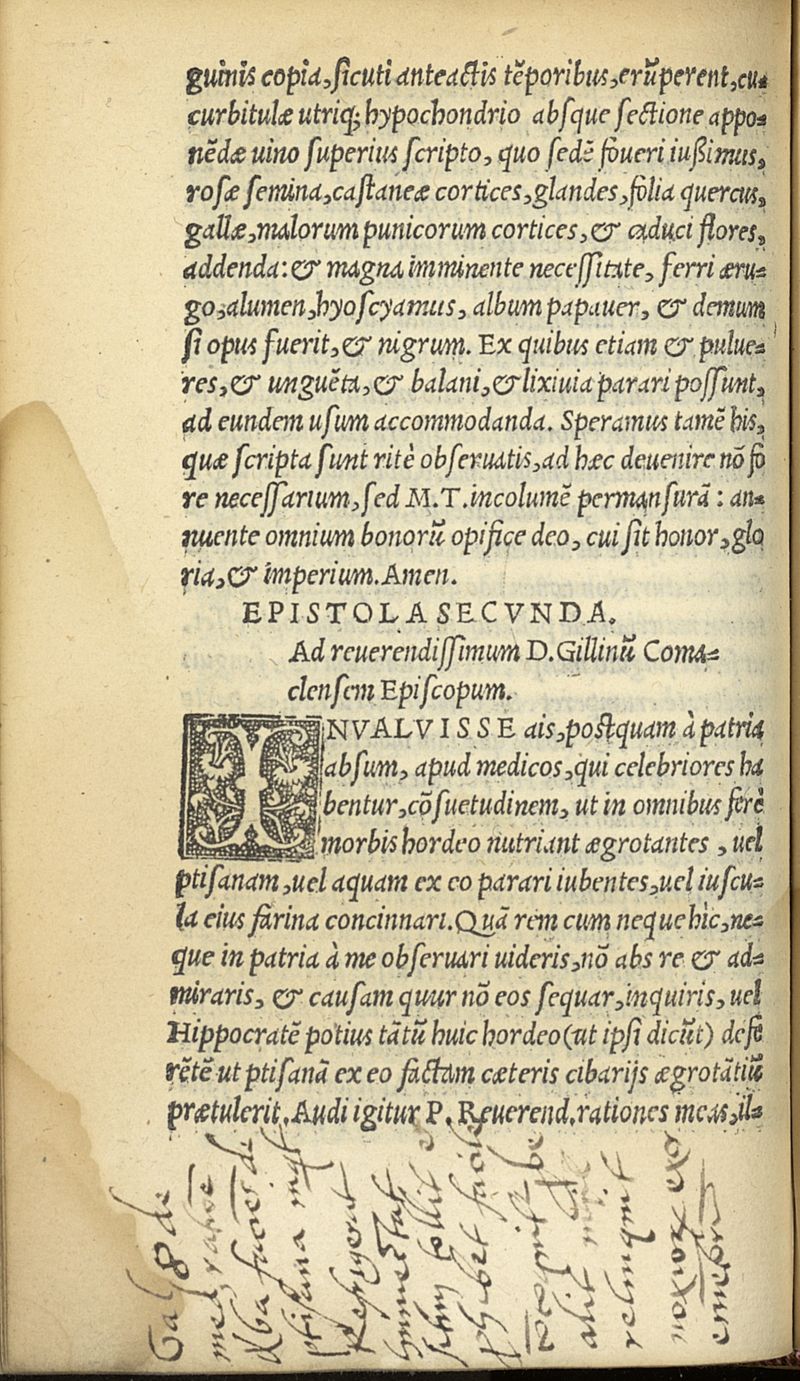 guinis copia,ſicuti anteactis tẽporibus,erũperent,cu-
curbitulæ utriq; hypochondrio abſque ſectione appo-
nẽdæ uino ſuperius ſcripto, quo ſedẽ foueri iuſsimus,
roſæ ſemina,caſtaneæ cortices,glandes,folia quercus,
gallæ,malorum punicorum cortices, & caduci flores,
addenda: & magna imminente neceſſitate, ferri æru-
go,alumen,hyoſcyamus, album papauer, & demum
ſi opus fuerit,& nigrum. Ex quibus etiam & pulue-
res,& unguẽta,& balani,& lixiuia parari poſſunt,
ad eundem uſum accommodanda. Speramus tamẽ his,
quæ ſcripta ſunt ritè obſeruatis,ad hæc deuenire nõ fo
re neceſſarium,ſed M.T.incolumẽ permanſurã: an-
nuente omnium bonorũ opifice deo, cui ſit honor,glo
ria,& imperium.Amen.
EPISTOLA SECVNDA.
Ad reuerendiſſimum D.Gillinũ Coma-
clenſem Epiſcopum.
INVALVISSE ais,poſtquam à patria
abſum, apud medicos,qui celebriores ha
bentur,cõſuetudinem, ut in omnibus ferè
morbis hordeo nutriant ægrotantes, uel
ptiſanam,uel aquam ex eo parari iubentes,uel iuſcu-
la eius farina concinnari.Quã rem cum neque hic,ne-
que in patria à me obſeruari uideris,nõ abs re & ad-
miraris, & cauſam quur nõ eos ſequar,inquiris, uel
Hippocratẽ potius tãtũ huic hordeo(ut ipſi dicũt) defe
rẽtẽ ut ptiſanã ex eo factam cæteris cibarijs ægrotãtiũ
prætulerit.Audi igitur P. Reuerend.rationes meas,il-
Gal 8 de
ptisana
refrigerat
relinquit